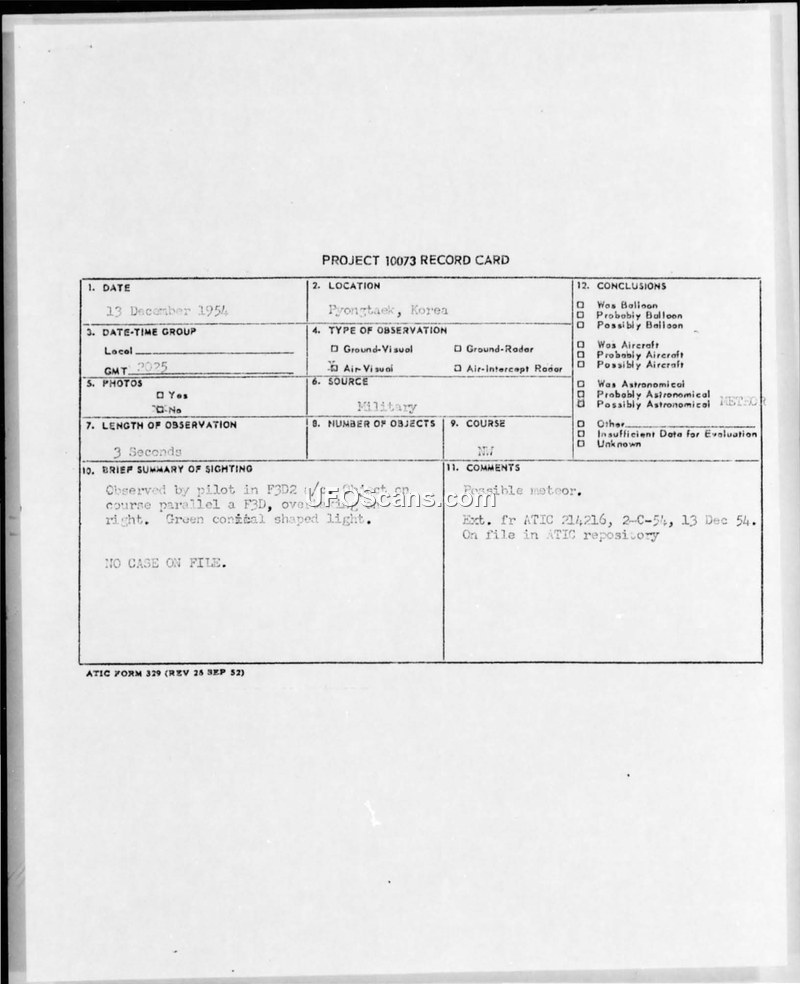 PROJECT 10073 RECORD CARD
1. DATE
13 December 1954
2. LOCATION
Pyongtaek, Korea
12. CONCLUSIONS
Was Balloon
Probably Balloon
Possibly Balloon
Was Aircraft
Probably Aircraft
Possibly Aircraft
Was Astronomical
Probably Astronomical
Possibly Astronomical METEOR
Other
Insufficient Data for Evaluation
Unknown
3. DATE-TIME GROUP
Local
GMT 2025
4. TYPE OF OBSERVATION
Ground-Visual Ground-Radar
X Air-Visual Air-Intercept Radar
5. PHOTOS
Yes
X No
6. SOURCE
Military
7. LENGTH OF OBSERVATION
3 Seconds
8. NUMBER OF OBJECTS
9. COURSE
NW
10. BRIEF SUMMARY OF SIGHTING
Observed by pilot in F3D2 Object on
course parallel a F3D, on
right. Green conical shaped light.
NO CASE ON FILE.
11. COMMENTS
Possible meteor.
Ext. fr ATIC 214216, 2-C-54, 13 Dec 54.
On file in ATIC repository
UFOScans.com
ATIC FORM 329 (REV 26 SEP 52)